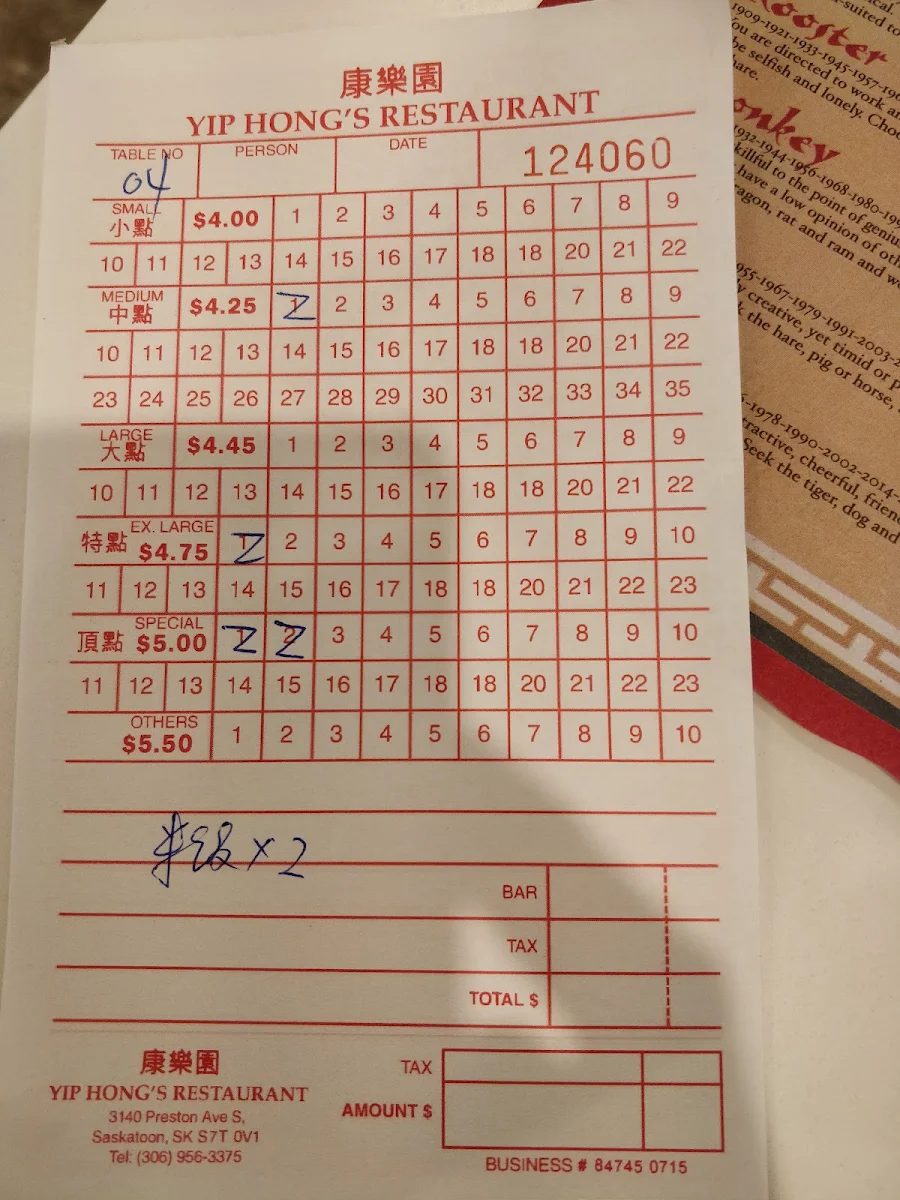 康樂園
YIP HONG'S RESTAURANT
TABLE NO PERSON DATE 124060
04
SMALL $4.00 1 2 3 4 5 6 7 8 9
小點
10 11 12 13 14 15 16 17 18 18 20 21 22
MEDIUM $4.25 Z 2 3 4 5 6 7 8 9
中點
10 11 12 13 14 15 16 17 18 18 20 21 22
23 24 25 26 27 28 29 30 31 32 33 34 35
LARGE $4.45 1 2 3 4 5 6 7 8 9
大點
10 11 12 13 14 15 16 17 18 18 20 21 22
特點 EX. LARGE
$4.75 Z 2 3 4 5 6 7 8 9 10
11 12 13 14 15 16 17 18 18 20 21 22 23
頂點 SPECIAL
$5.00 Z Z 3 4 5 6 7 8 9 10
11 12 13 14 15 16 17 18 18 20 21 22 23
OTHERS
$5.50 1 2 3 4 5 6 7 8 9 10
x 2
BAR
TAX
TOTAL $
康樂園
YIP HONG'S RESTAURANT
3140 Preston Ave S,
Saskatoon, SK S7T 0V1
Tel: (306) 956-3375
TAX
AMOUNT $
BUSINESS # 84745 0715
suited to
Rooster
1909-1921-1933-1945-1957-196
You are directed to work a
be selfish and lonely. Choo
hare.
onkey
932-1944-1956-1968-1980-199
killful to the point of geniu
have a low opinion of oth
ragon, rat and ram and w
955-1967-1979-1991-2003-2
y creative, yet timid or p
k the hare, pig or horse,
-1978-1990-2002-2014-
tractive, cheerful, frien
Seek the tiger, dog and